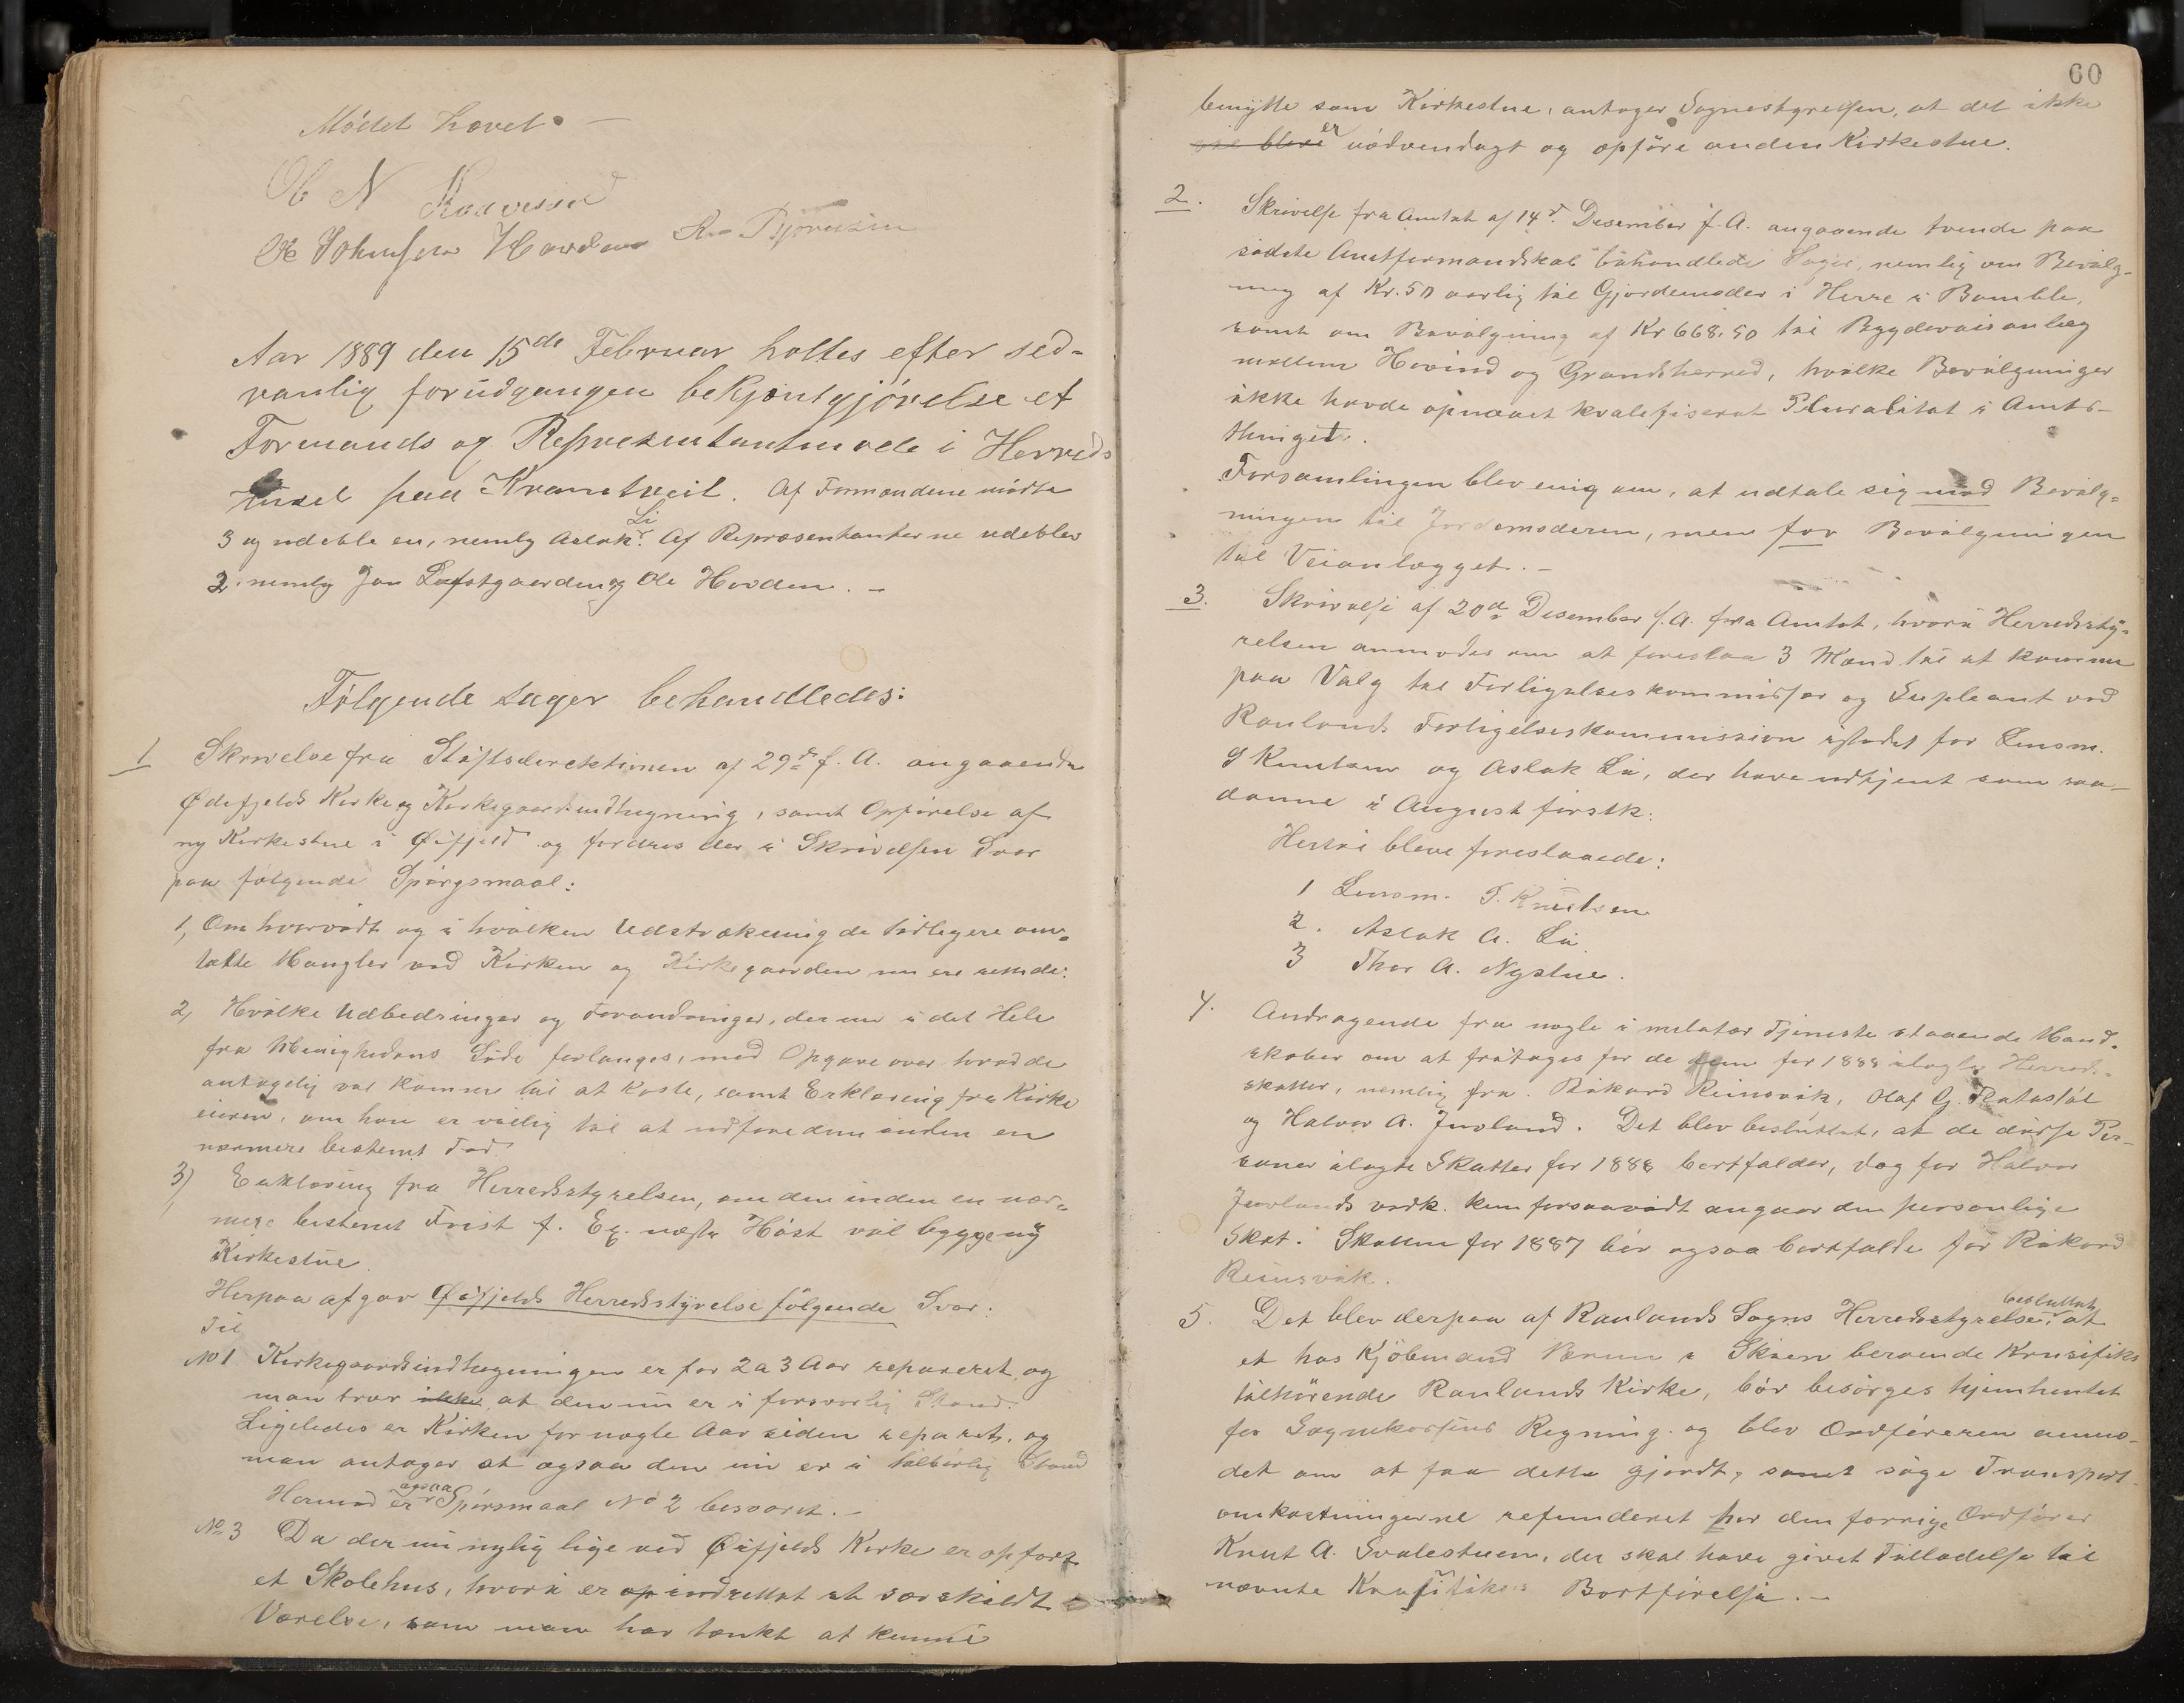 Mödet hævet. —
Ole N
O Johnsen Hovden R. Björnsen
Aar 1889 den 15de Februar holtes efter sed-
vanlig forudgangen bekjentgjörelse et
Formands og Repræsentantmøde i Herreds
paa Kramtveit. Af Formændene mödte
3 og udeble en, nemlig Aslak Li. Af Repræsentanterne udeblev
2. nemlig Jon Lofstgaarden og Ole Hovden. —
Følgende sager behandledes:
1 Skrivelse fra Stiftsdirektionen af 29de f. A. angaaende
Øifjelds Kirke og Kirkegaardsindhegning, samt Opförelse af
ny Kirkestue i Øifjeld og fordres der i Skrivelsen Svar
paa følgende Spörgsmaal:
1, Om hvorvidt og i hvilken Udstrækning de tidligere om-
talte Mangler ved Kirken og Kirkegaarden nu ere
2, Hvilke Udbedringer og Forandringer, der nu i det Hele
fra Menighedens Side forlanges, med Opgave over hvad de
antagelig vil komme til at koste, samt Erklæring fra Kirke
eieren, om han er villig til at udføre dem inden en
nærmere bestemt Tid
3) Erklæring fra Herredsstyrelsen, om den inden en nær-
mere bestemt Frist f. Ex. næste Höst vil bygge ny
Kirkestue.
Herpaa afgav Øifjelds Herredsstyrelse fölgende Svar:
Til
No 1 Kirkegaardsindhegningen er for 2 a 3 Aar repareret, og
man tror ikke, at den nu er i forsvarlig Stand.
Ligeledes er Kirken for nogle Aar siden reparet, og
man antager at ogsaa den nu er i tilbörlig Stand
Hermed er ogsaa Spörsmaal No 2 besvaret. —
No 3 Da der nu nylig lige ved Øifjelds Kirke er opfört
et Skolehus, hvori er op indrettet et særskildt
Værelse, som man har tænkt at kunne
60
benytte som Kirkestue, antager Sognestyrelsen, at det ikke
vil blive er nödvendigt og opföre anden Kirkestue.
2. Skrivelse fra Amtet af 14de Desember f. A. angaaende tvende paa
sidste Amtformandskab behandlede Sager, nemlig om Bevilg-
ning af Kr. 50 aarlig til Gjordemoder i Herre i Bamble,
samt om Bevilgning af Kr 668,50 til Bygdeveisanlæg
mellem Hovind og Grandsherred, hvilke Bevilgninger
ikke havde opnaaet kvalefiseret Pluralitet i Amts-
thinget.
Forsamlingen blev enig om, at udtale sig mod Bevilg-
ningen til Jordemoderen, men for Bevilgningen
til Veianlægget. —
3. Skrivelse af 20de Desember f. A. fra Amtet, hvori Herredssty-
relsen anmodes om at foreslaa 3 Mænd til at komme
paa Valg til Forligelseskommissær og Supleant ved
Raulands Forligelseskommission istedet for Lensm.
T Knutsen og Aslak Li, der have udtjent som saa-
danne i August förstk.
Hertil bleve foreslaaede:
1 Lensm. T. Knutsen
2. Aslak A. Li
3 Thor A. Nystue.
4. Andragende fra nogle i melitær Tjeneste staaende Mand-
skaber om at fritages for de dem for 1888 ilagte Herreds-
skatter, nemlig fra Rikard Reinsvik, Olaf G.
og Halvor A. Juvland. Det blev besluttet, at de disse Per-
soner ilagte Skatter for 1888 bortfalder, dog for Halvor
Juvlands vedk. kun forsaavidt angaar den personlige
Skat. Skatten for 1887 bör ogsaa bortfalde for Rikard
Reinsvik.
5. Det blev derpaa af Raulands Sogns Herredsstyrelse besluttet, at
et hos Kjöbmand i Skien beroende Krusifiks
tilhörende Raulands Kirke, bör besörges hjemhentet
for Sognekassens Regning og blev Ordföreren anmo-
det om at faa dette gjordt, samt söge Transport-
omkostningerne refunderet hos den forrige Ordförer
Knut A. Svalestuen, der skal have givet Tilladelse til
nævnte Krusifikses Bortförelse. —